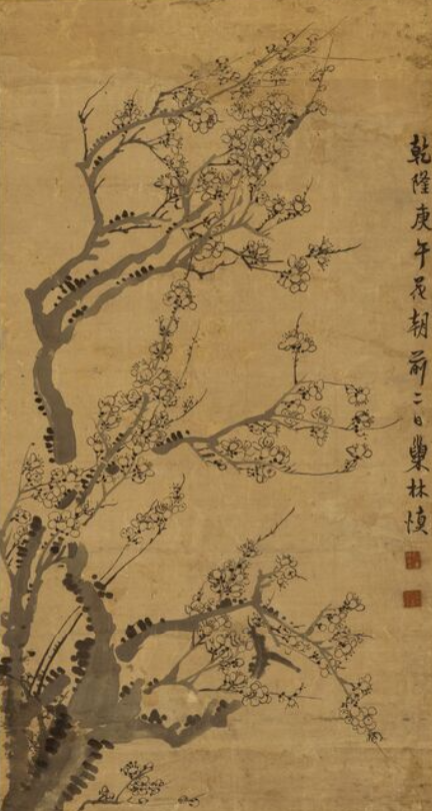 乾隆庚午花朝前二日巢林慎